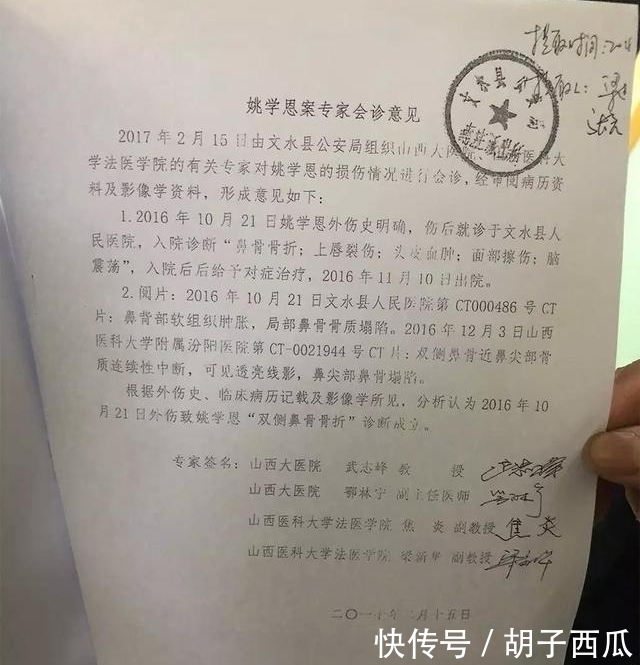 提取时间:201
姚学恩案专家会诊意见
2017年2月15日由文水县公安局组织山西大医院、山西医科大
学法医学院的有关专家对姚学恩的损伤情况进行会诊,经审阅病历资
料及影像学资料,形成意见如下:
1.2016年10月21日姚学恩外伤史明确,伤后就诊于文水县人
民医院,入院诊断“鼻骨骨折;上唇裂伤;头皮血肿;面部擦伤;脑
震荡”,入院后后给予对症治疗,2016年11月10日出院。
2.阅片:2016年10月21日文水县人民医院第CT000486号CT
片:鼻背部软组织肿胀,局部鼻骨骨质塌陷。2016年12月3日山西
医科大学附属汾阳医院第CT-0021944号CT片:双侧鼻骨近鼻尖部骨
质连续性中断,可见透亮线影,鼻尖部鼻骨塌陷。
根据外伤史、临床病历记载及影像学所见,分析认为2016年10
月21日外伤致姚学恩“双侧鼻骨骨折”诊断成立。
专家签名:山西大医院 武志峰 教 授
山西大医院 鄂林宁 副主任医师
山西医科大学法医学院 焦 炎 副教授 焦炎
山西医科大学法医学院 梁新华 副教授
二〇一七年二月十五日
快传号 / 胡子西瓜